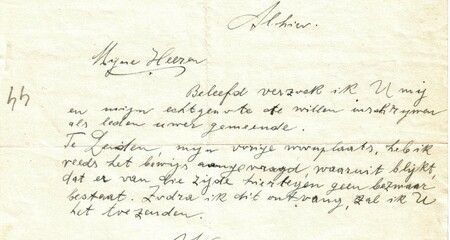 Alhier.
Mijne Heeren
Beleefd verzoek ik U mij
en mijn echtgenote te willen inschrijven
als leden uwer gemeente.
Te Leiden, mijn vorige woonplaats, heb ik
reeds het bewijs aangevraagd, waaruit blijkt,
dat er van die zijde hiertegen geen bezwaar
bestaat. Zodra ik dit ontvang, zal ik U
het toezenden.
44